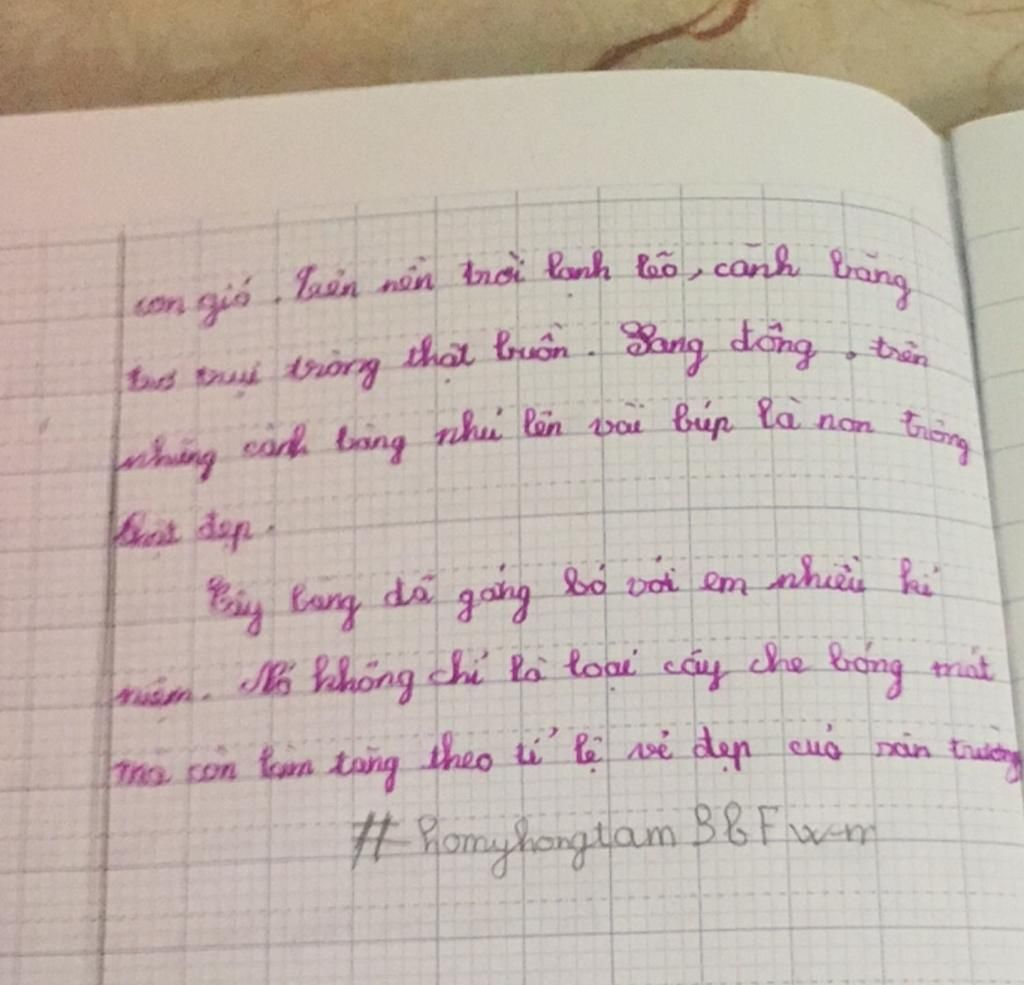 cơn gió. Trên nền trời lạnh lẽo, cành bàng
trơ trụi trông thật buồn. Sang đông, trên
những cành bàng nhú lên vài búp lá non trông
thật đẹp.
Cây bàng đã gắng bó với em nhiều kỉ
niệm. Nó không chỉ là loại cây che bóng mát
mà còn làm tăng theo tỉ lệ vẻ đẹp của sân trường
# homyhongtam B&F